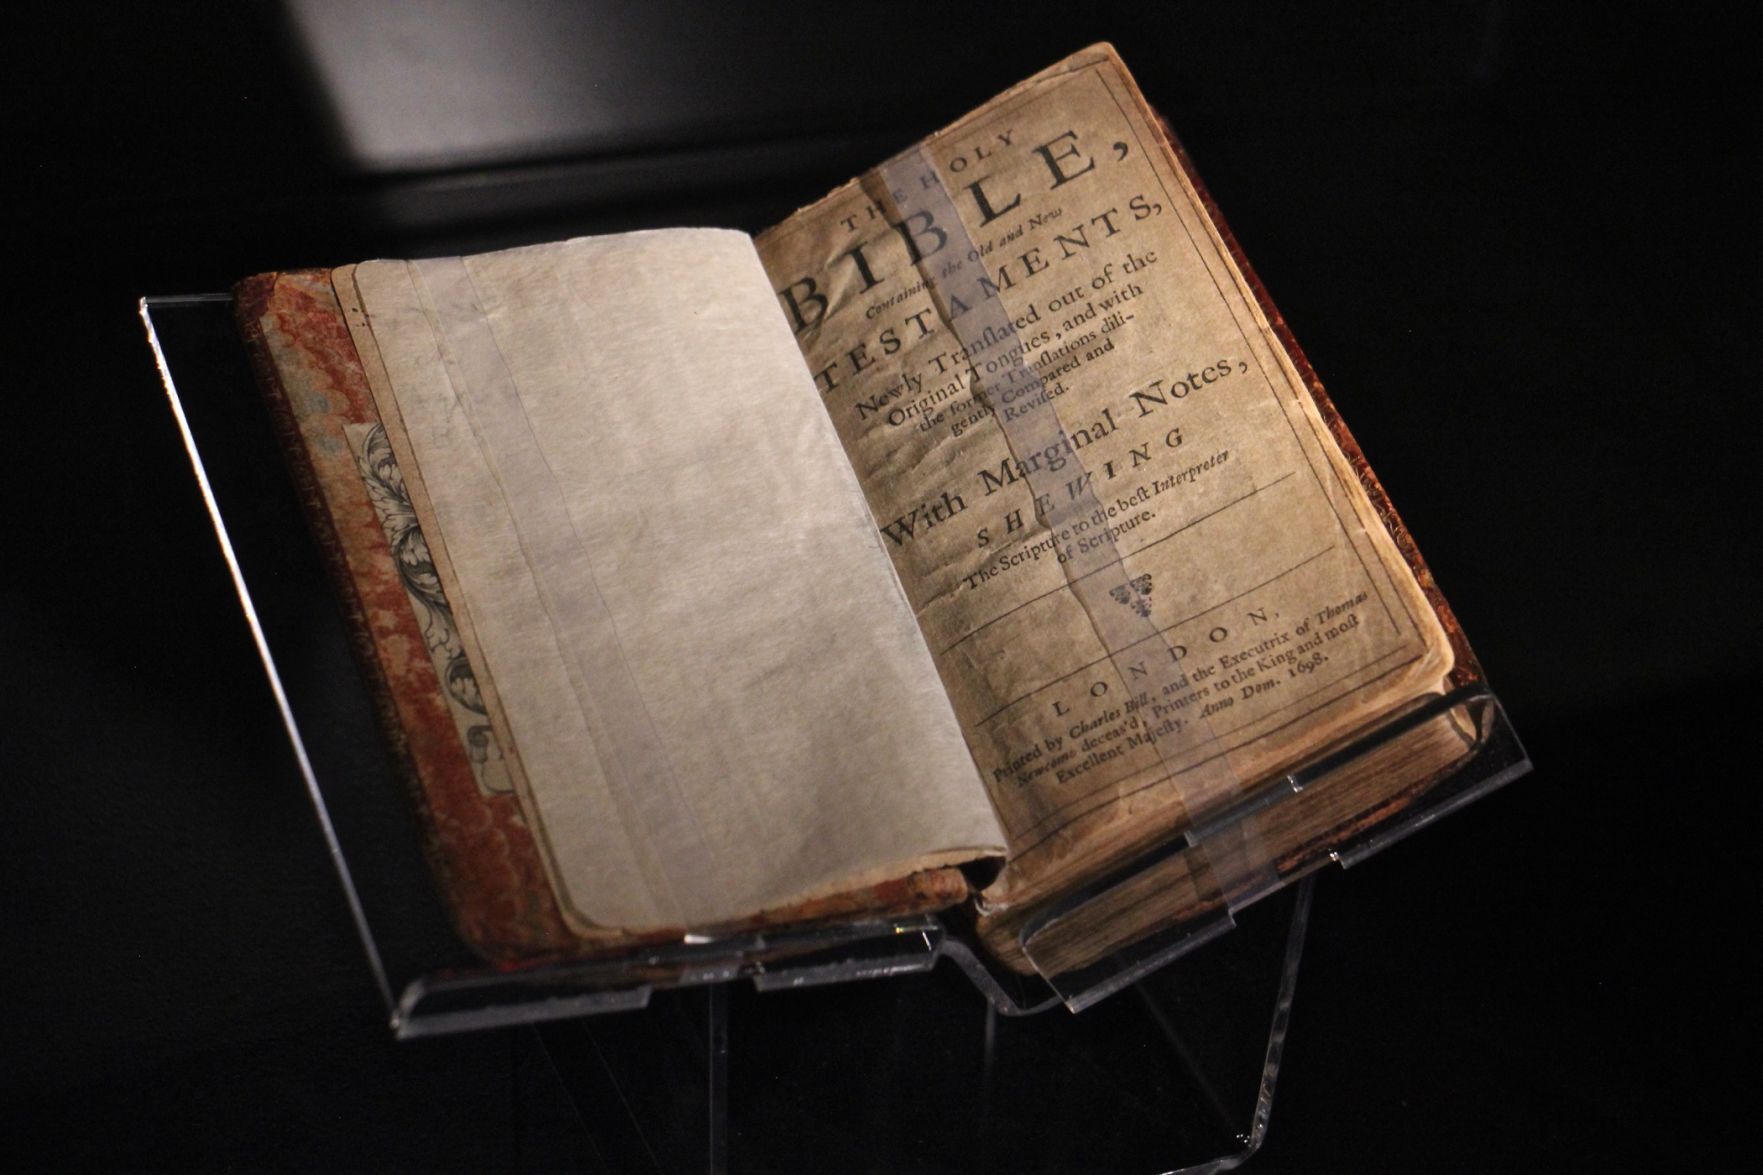 THE HOLY
BIBLE,
Containing the Old and New
TESTAMENTS,
Newly Tranſlated out of the
Original Tongues, and with
the former Tranſlations dili-
gently Compared and
Reviſed.
With Marginal Notes,
SHEWING
The Scripture to the beſt Interpreter
of Scripture.
LONDON,
Printed by Charles Bill, and the Executrix of Thomas
Newcomb deceas'd, Printers to the King and moſt
Excellent Majeſty. Anno Dom. 1698.